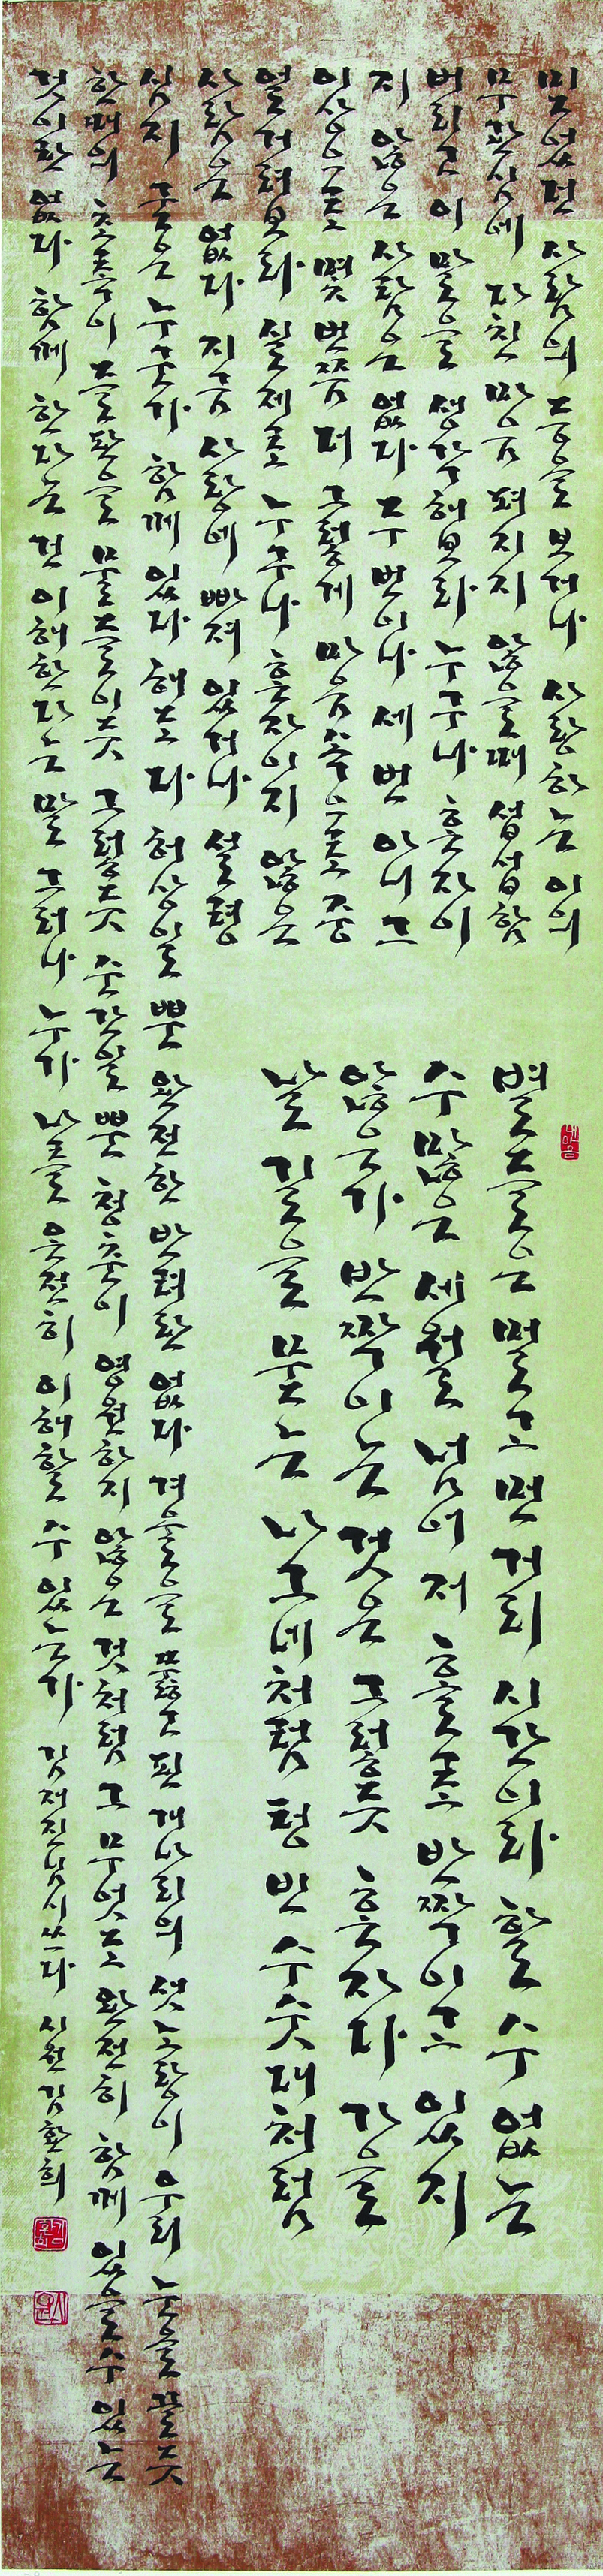 믿었던 사람의 등을 보거나 사랑하는 이의
무관심에 다친 마음 펴지지 않을 때 섭섭함
버리고 이 말을 생각해보라 누구나 혼자이
지 않은 사람은 없다 두 번이나 세 번 아니 그
이상으로 몇 번쯤 더 그렇게 마음속으로 중
얼거려 보라 실제로 누구나 혼자이지 않은
사람은 없다 지금 사랑에 빠져 있거나 설령
심지 굳은 누군가 함께 있다 해도 다 허상일 뿐 완전한 반려란 없다 겨울을 뚫고 핀 개나리의 샛노랑이 우리 눈을 끌듯
한때의 초록이 들판을 물들이듯 그렇듯 순간일 뿐 청춘이 영원하지 않은 것처럼 그 무엇도 완전히 함께 있을 수 있는
것이란 없다 함께 한다는 건 이해한다는 말 그러나 누가 나를 온전히 이해할 수 있는가 김재진님 시 쓰다 시원 김환희
별들은 멀고 먼 거리 시간이라 할 수 없는
수많은 세월 넘어 저 홀로 반짝이고 있지
않은가 반짝이는 것은 그렇듯 혼자다 가을
날 길을 묻는 나그네처럼 텅 빈 수숫대처럼